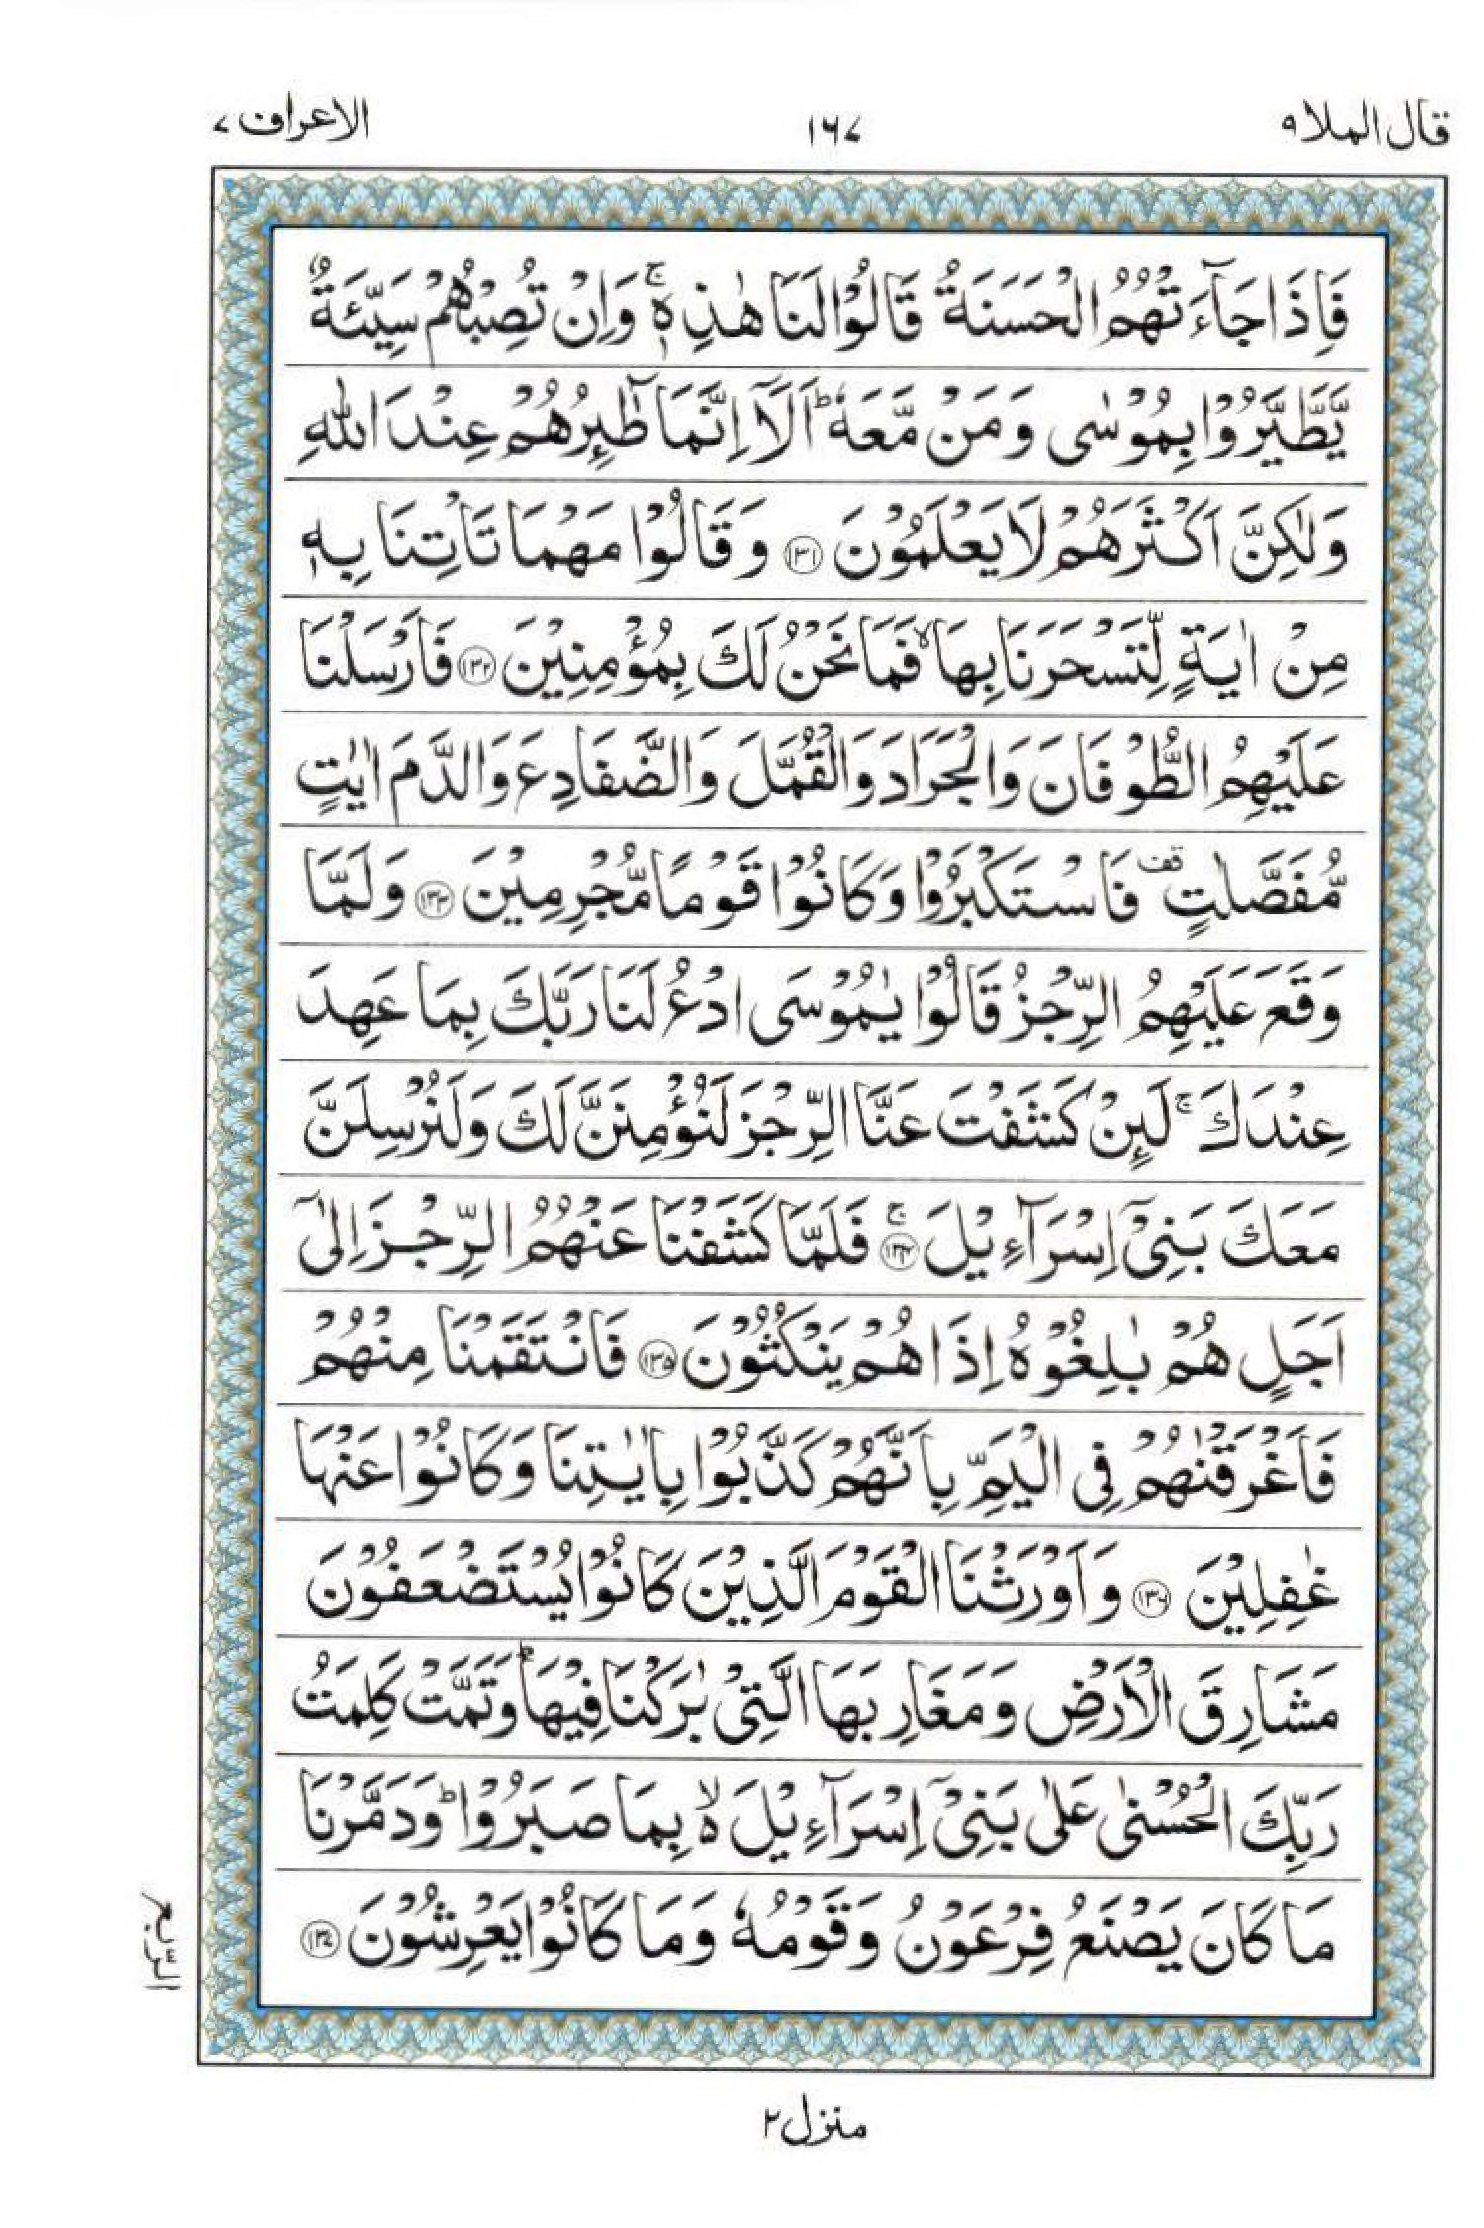 قال الملا ٩
١٦٧
الاعراف ٧
فَاِذَا جَآءَتْهُمُ الْحَسَنَةُ قَالُوْا لَنَا هٰذِهٖ ۚ وَاِنْ تُصِبْهُمْ سَيِّئَةٌ
يَّطَّيَّرُوْا بِمُوْسٰى وَمَنْ مَّعَهٗ ؕ اَلَاۤ اِنَّمَا طٰٓئِرُهُمْ عِنْدَ اللّٰهِ
وَلٰكِنَّ اَكْثَرَهُمْ لَا يَعْلَمُوْنَ ﴿١٣١﴾ وَقَالُوْا مَهْمَا تَاْتِنَا بِهٖ
مِنْ اٰيَةٍ لِّتَسْحَرَنَا بِهَا ۙ فَمَا نَحْنُ لَكَ بِمُؤْمِنِيْنَ ﴿١٣٢﴾ فَاَرْسَلْنَا
عَلَيْهِمُ الطُّوْفَانَ وَالْجَرَادَ وَالْقُمَّلَ وَالضَّفَادِعَ وَالدَّمَ اٰيٰتٍ
مُّفَصَّلٰتٍ ۟قف فَاسْتَكْبَرُوْا وَكَانُوْا قَوْمًا مُّجْرِمِيْنَ ﴿١٣٣﴾ وَلَمَّا
وَقَعَ عَلَيْهِمُ الرِّجْزُ قَالُوْا يٰمُوْسَى ادْعُ لَنَا رَبَّكَ بِمَا عَهِدَ
عِنْدَكَ ۚ لَئِنْ كَشَفْتَ عَنَّا الرِّجْزَ لَنُؤْمِنَنَّ لَكَ وَلَنُرْسِلَنَّ
مَعَكَ بَنِيْۤ اِسْرَآءِيْلَ ﴿١٣٤﴾ۚ فَلَمَّا كَشَفْنَا عَنْهُمُ الرِّجْزَ اِلٰۤى
اَجَلٍ هُمْ بٰلِغُوْهُ اِذَا هُمْ يَنْكُثُوْنَ ﴿١٣٥﴾ فَانْتَقَمْنَا مِنْهُمْ
فَاَغْرَقْنٰهُمْ فِى الْيَمِّ بِاَنَّهُمْ كَذَّبُوْا بِاٰيٰتِنَا وَكَانُوْا عَنْهَا
غٰفِلِيْنَ ﴿١٣٦﴾ وَاَوْرَثْنَا الْقَوْمَ الَّذِيْنَ كَانُوْا يُسْتَضْعَفُوْنَ
مَشَارِقَ الْاَرْضِ وَمَغَارِبَهَا الَّتِيْ بٰرَكْنَا فِيْهَا ؕ وَتَمَّتْ كَلِمَتُ
رَبِّكَ الْحُسْنٰى عَلٰى بَنِيْۤ اِسْرَآءِيْلَ ۙ بِمَا صَبَرُوْا ؕ وَدَمَّرْنَا
مَا كَانَ يَصْنَعُ فِرْعَوْنُ وَقَوْمُهٗ وَمَا كَانُوْا يَعْرِشُوْنَ ﴿١٣٧﴾
الرّبع
منزل ٢